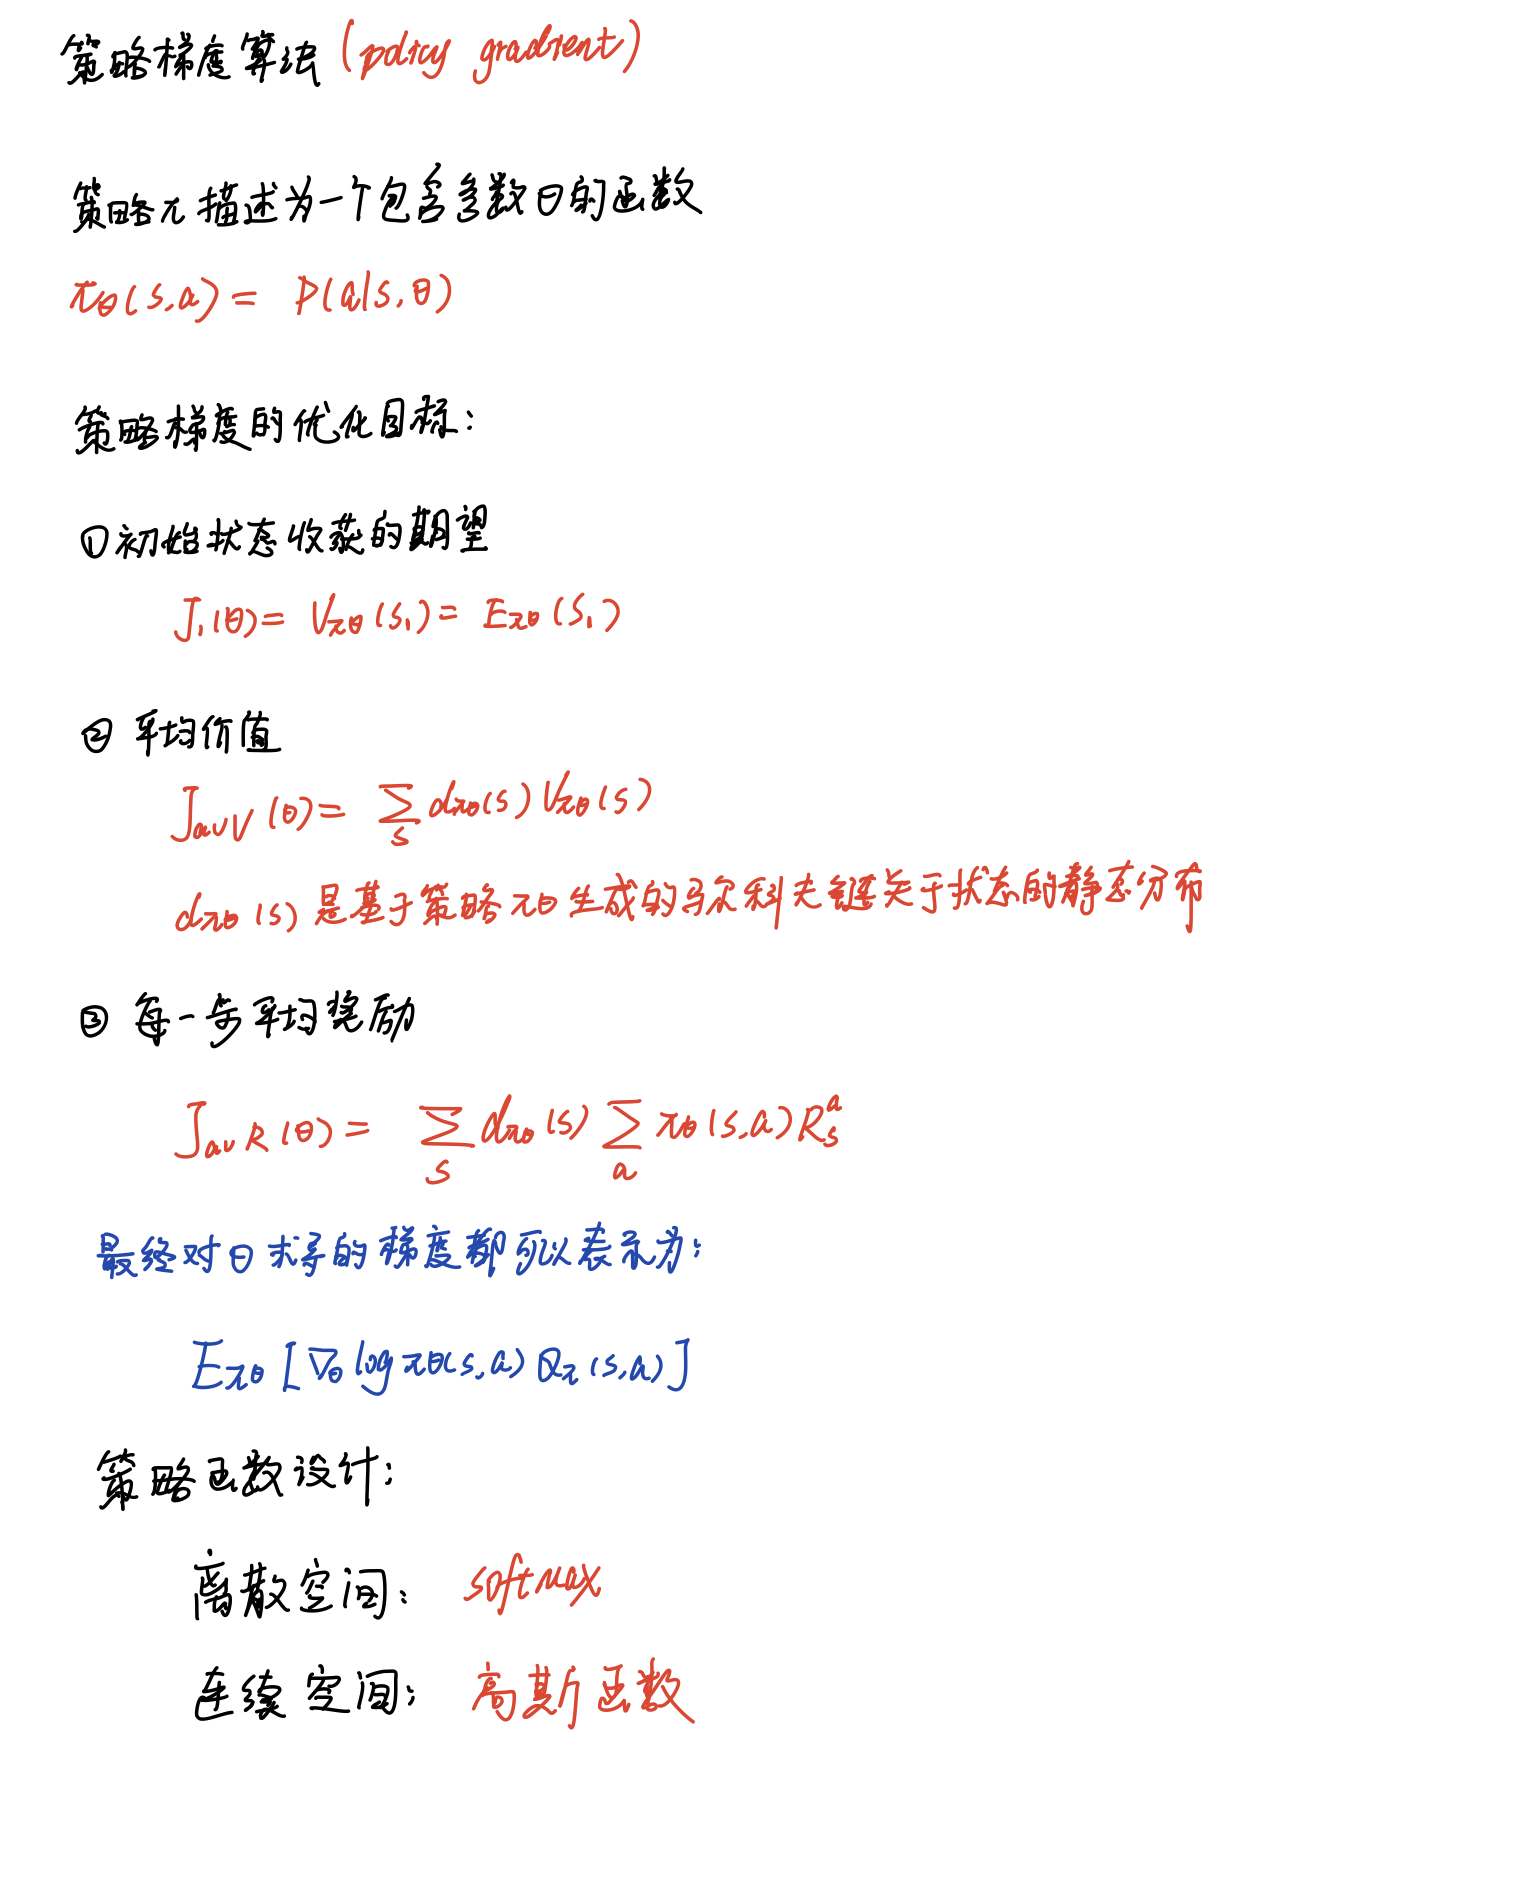 策略梯度算法(policy gradient)
策略π描述为一个包含参数θ的函数
πθ(s,a) = P(a|s,θ)
策略梯度的优化目标:
①初始状态收获的期望
J₁(θ) = Vπθ(s₁) = Eπθ(S₁)
② 平均价值
JavV(θ) = ∑s dπθ(s) Vπθ(s)
dπθ(s) 是基于策略πθ生成的马尔科夫链关于状态的静态分布
③ 每一步平均奖励
JavR(θ) = ∑s dπθ(s) ∑a πθ(s,a) Rsᵃ
最终对θ求导的梯度都可以表示为:
Eπθ[∇θ log πθ(s,a) Qπ(s,a)]
策略函数设计:
离散空间: softmax
连续空间: 高斯函数